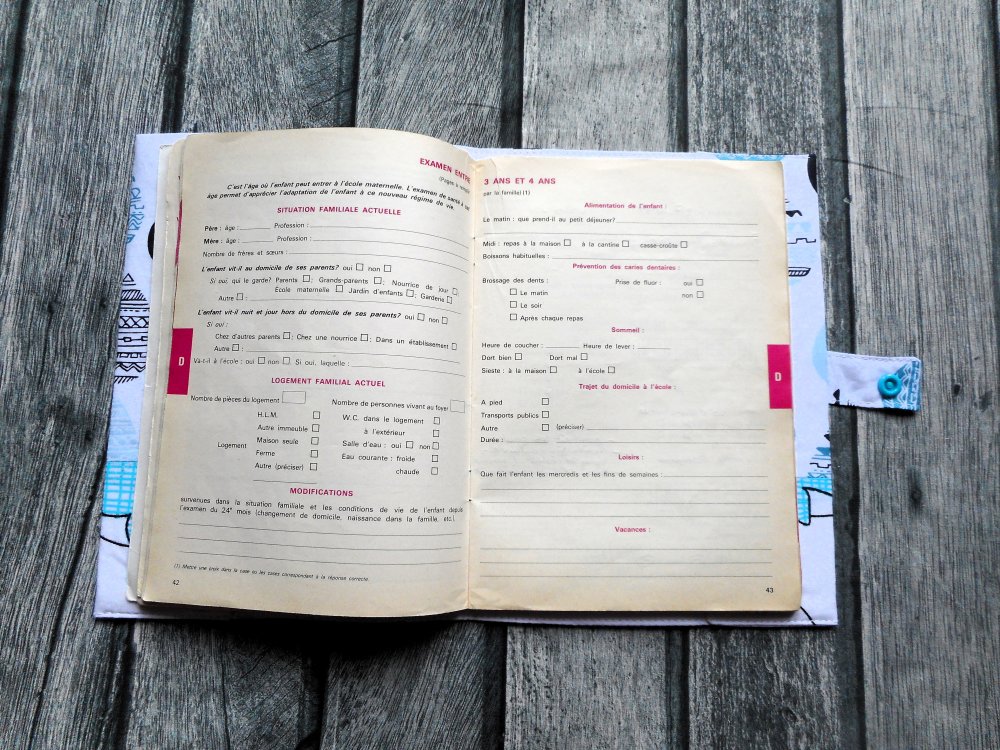 EXAMEN ENTRE
C'est l'âge où l'enfant peut entrer à l'école maternelle. L'examen de santé à cet
âge permet d'apprécier l'adaptation de l'enfant à ce nouveau régime de vie.
SITUATION FAMILIALE ACTUELLE
Père : âge : Profession :
Mère : âge : Profession :
Nombre de frères et sœurs :
L'enfant vit-il au domicile de ses parents? oui □ non □
Si oui, qui le garde? Parents □; Grands-parents □; Nourrice de jour □;
École maternelle □ Jardin d'enfants □; Garderie □
Autre □ :
L'enfant vit-il nuit et jour hors du domicile de ses parents? oui □ non □
Si oui :
Chez d'autres parents □; Chez une nourrice □; Dans un établissement □
Autre □ :
Va-t-il à l'école : oui □ non □ Si oui, laquelle :
D
LOGEMENT FAMILIAL ACTUEL
Nombre de pièces du logement □ Nombre de personnes vivant au foyer □
Logement
H.L.M. □
Autre immeuble □
Maison seule □
Ferme □
Autre (préciser) □
W.C. dans le logement □
à l'extérieur □
Salle d'eau : oui □ non □
Eau courante : froide □
chaude □
MODIFICATIONS
survenues dans la situation familiale et les conditions de vie de l'enfant depuis
l'examen du 24e mois (changement de domicile, naissance dans la famille, etc.).
(1) Mettre une croix dans la case ou les cases correspondant à la réponse correcte.
42
3 ANS ET 4 ANS
par la famille) (1)
Alimentation de l'enfant :
Le matin : que prend-il au petit déjeuner?
Midi : repas à la maison □ à la cantine □ casse-croûte □
Boissons habituelles :
Prévention des caries dentaires :
Brossage des dents : Prise de fluor : oui □
non □
□ Le matin
□ Le soir
□ Après chaque repas
Sommeil :
Heure de coucher : Heure de lever :
Dort bien □ Dort mal □
Sieste : à la maison □ à l'école □
D
Trajet du domicile à l'école :
A pied □
Transports publics □
Autre □ (préciser)
Durée :
Loisirs :
Que fait l'enfant les mercredis et les fins de semaines :
Vacances :
43